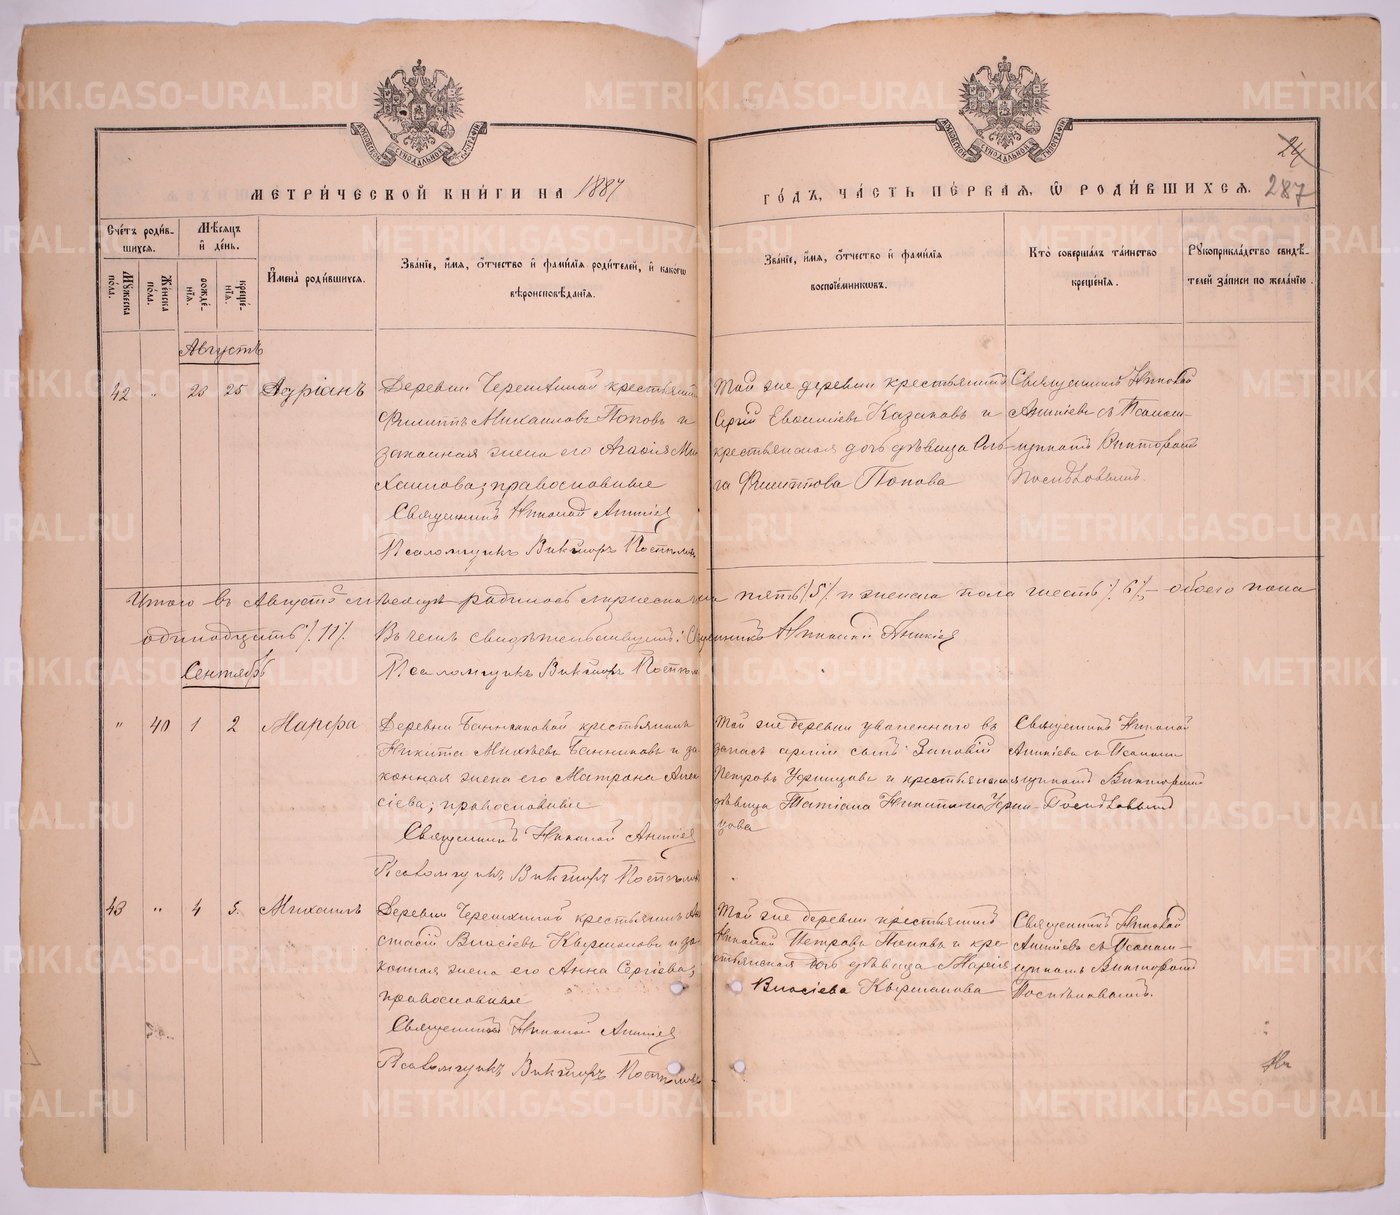 МЕТРИ́ЧЕСКОЙ КНИ́ГИ НА 1887
ГО́ДЪ, ЧА́СТЬ ПЕ́РВАЯ, Ѡ РОДИ́ВШИХСЯ.
24
287
Сче́тъ роди́в-
шихся.
Мꙋ́жеска
по́ла.
Же́нска
по́ла.
Мѣ́сяцъ
и де́нь.
рожде́-
нїя.
креще́-
нїя.
Имена̀ роди́вшихся.
Зва́нїе, и́мя, о́тчество и фами́лїя роди́телей, и како́гѡ
вѣроисповѣ́данїя.
Зва́нїе, и́мя, о́тчество и фами́лїя
воспрїе́мниковъ.
Кто̀ соверша́лъ та́инство
креще́нїя.
Рꙋкоприкла́дство свидѣ́-
телей за́писи по жела́нїю.
Августъ
42 " 23 25 Адріанъ
Деревни Черемхиной крестьянинъ
Филиппъ Михаиловъ Поповъ и
законная жена его Агафія Ми
хаилова; православные
Священникъ Николай Аникіев
Псаломщикъ Викторъ Поспѣловъ
Той же деревни крестьянинъ
Сергій Евсиміевъ Казаковъ и
крестьянская дочь дѣвица Оль-
га Филиппова Попова
Священникъ Николай
Аникіевъ съ Псалом-
щикомъ Викторомъ
Поспѣловымъ.
Итого въ Августѣ мѣсяцѣ родилось мужеска пола пять /5/ и женска пола шесть /6/, - обоего пола
одинадцать /11/. Въ чемъ свидѣтельствуютъ: Священникъ Николай Аникіев
Псаломщикъ Викторъ Поспѣлов
Сентябрь
" 40 1 2 Марѳа
Деревни Банниковой крестьянинъ
Никита Михѣевъ Банниковъ и за
конная жена его Матрона Алек
сіева; православные
Священникъ Николай Аникіев
Псаломщикъ Викторъ Поспѣлов
Той же деревни уволеннаго въ
запасъ арміи сынъ Зиновій
Петровъ Уфимцовъ и крестьянская
дѣвица Татіана Никитина Уфим-
цова
Священникъ Николай
Аникіевъ съ Псалом-
щикомъ Викторомъ
Поспѣловымъ
43 " 4 5. Михаилъ
Деревни Черемхиной крестьянинъ Ана
стасій Власіевъ Кырчиковъ и за-
конная жена его Анна Сергіева;
православные
Священникъ Николай Аникіев
Псаломщикъ Викторъ Поспѣловъ
Той же деревни крестьянинъ
Николай Петровъ Поповъ и кре-
стьянская дочь дѣвица Марія
Власіева
Священникъ Николай
Аникіевъ съ Псалом-
щикомъ Викторомъ
Поспѣловымъ.
METRIKI.GASO-URAL.RU